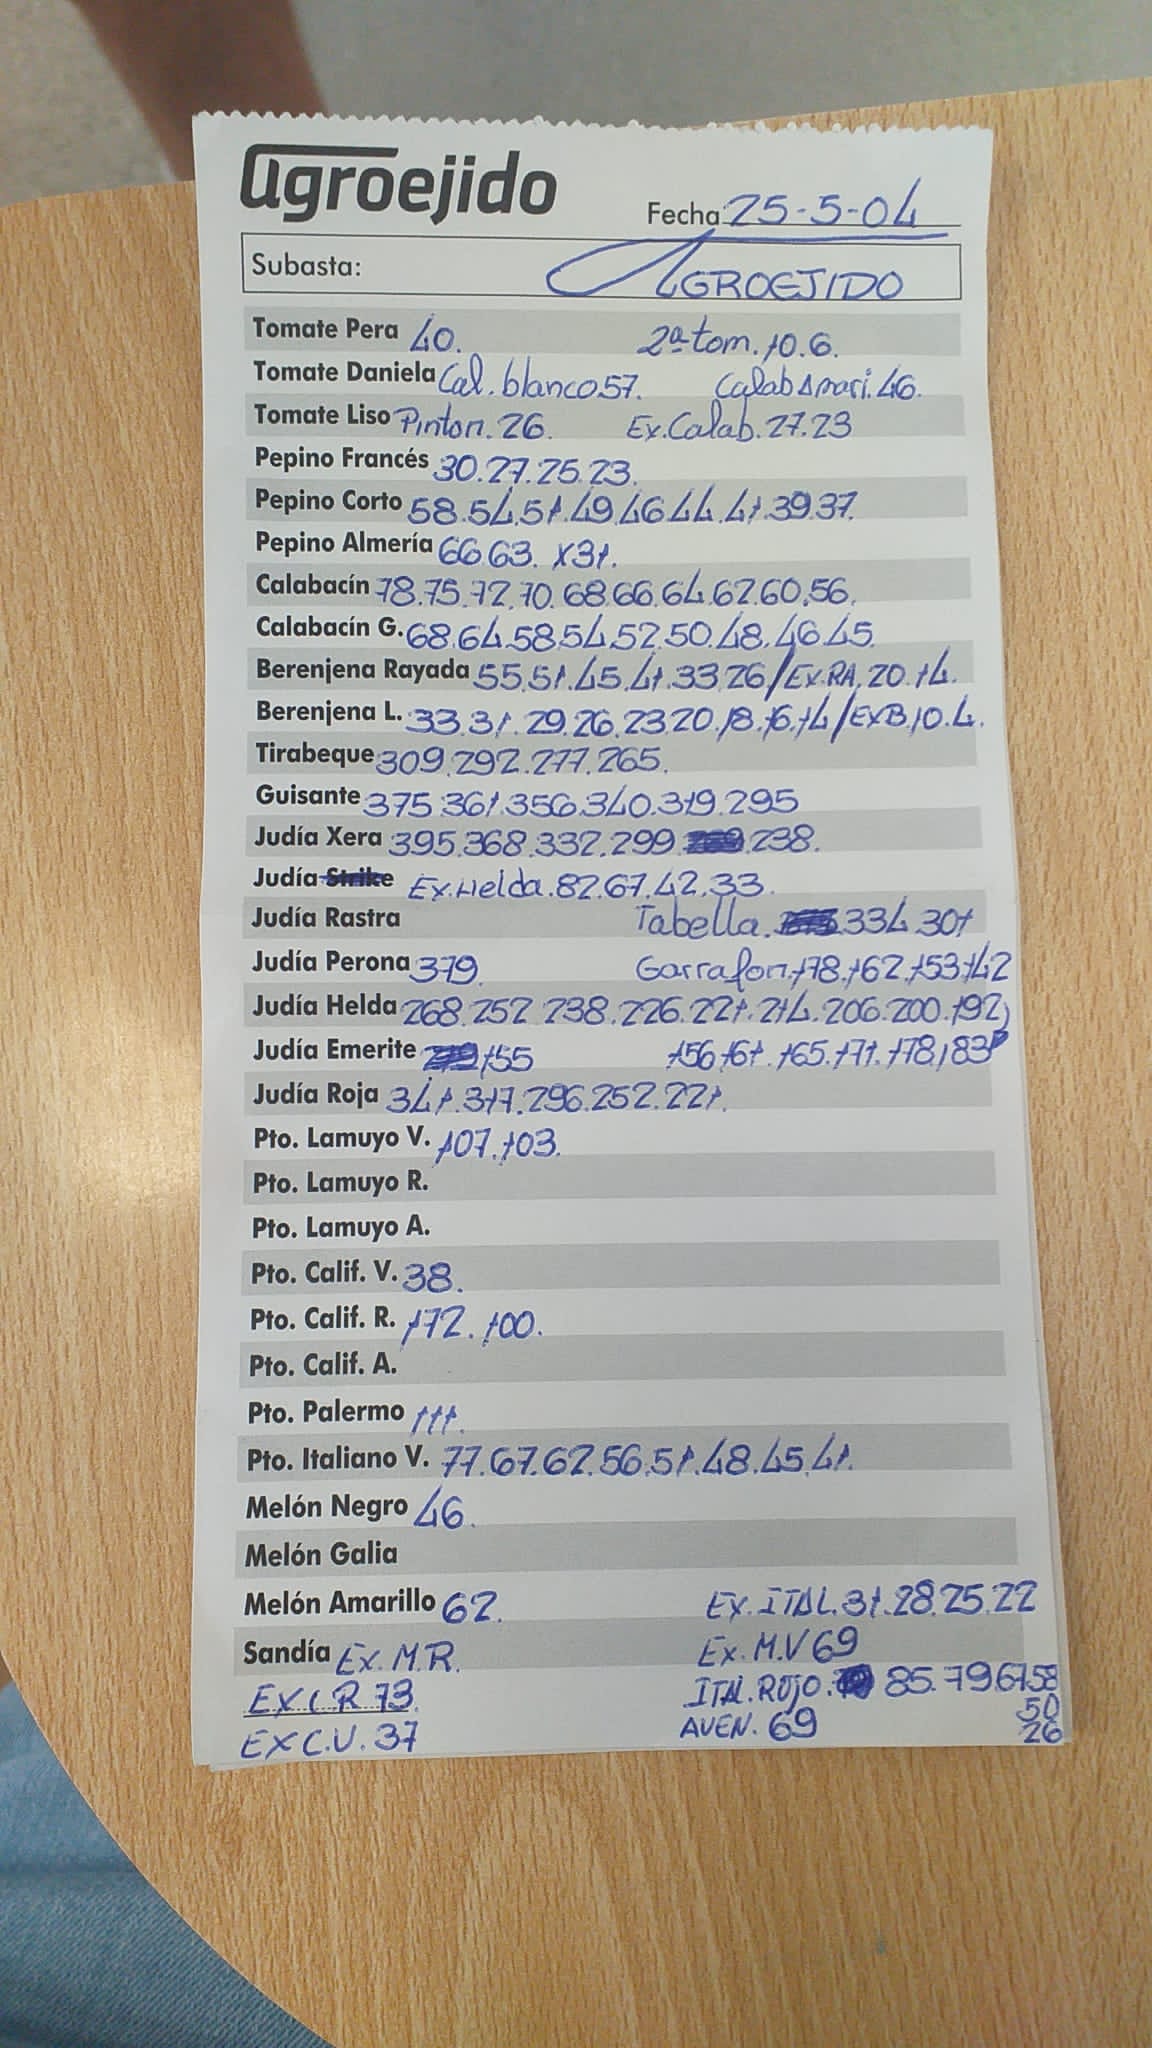 agroejido
Fecha: 25-5-04
Subasta: AGROEJIDO
Tomate Pera 40. 2ª tom. 10.6.
Tomate Daniela Cal. blanco 57. Calab Amari. 46.
Tomate Liso Pinton. 26. Ex. Calab. 27.23
Pepino Francés 30.27.25.23.
Pepino Corto 58.54.51.49.46.44.41.39.37.
Pepino Almería 66.63. x31.
Calabacín 78.75.72.70.68.66.64.62.60.56.
Calabacín G. 68.64.58.54.52.50.48.46.45.
Berenjena Rayada 55.51.45.41.33.26/Ex.RA.20.14.
Berenjena L. 33.31.29.26.23.20.18.16.14/EXB.10.4.
Tirabeque 309.292.277.265.
Guisante 375.361.356.340.319.295
Judía Xera 395.368.332.299. 238.
Judía Strike Ex. Helda. 82.67.42.33.
Judía Rastra Tabella. 334.301
Judía Perona 379. Garrafon. 178.162.153.142
Judía Helda 268.252.238.226.221.214.206.200.192)
Judía Emerite 155 156.161.165.171.178.183
Judía Roja 341.317.296.252.221.
Pto. Lamuyo V. 107.103.
Pto. Lamuyo R.
Pto. Lamuyo A.
Pto. Calif. V. 38.
Pto. Calif. R. 172.100.
Pto. Calif. A.
Pto. Palermo 111.
Pto. Italiano V. 77.67.62.56.51.48.45.41.
Melón Negro 46.
Melón Galia
Melón Amarillo 62. Ex. ITAL. 31.28.25.22
Sandía Ex. M.R. Ex. M.V 69
EX.C.R 73. ITAL. ROJO. 85.79.67.58
50
EX C.V. 37 AVEN. 69 26